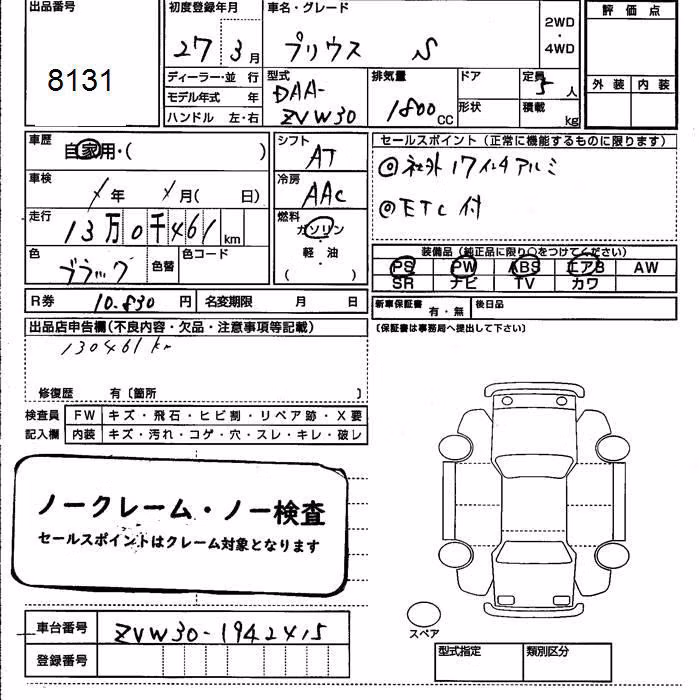 出品番号
8131
初度登録年月
27 3月
車名・グレード
プリウス S
2WD
・
4WD
評価点
外装 内装
ディーラー・並 行
モデル年式 年
ハンドル 左・右
型式
DAA-
ZVW30
排気量
1800 CC
ドア
形状
定員
5人
積載 kg
車歴
自家用・( )
車検
/ 年 / 月( 日)
走行
13万0千461 km
色
ブラック
色替
色コード
シフト
AT
冷房
AAC
燃料
ガソリン
・
軽・油
( )
セールスポイント(正常に機能するものに限ります)
◎社外17インチアルミ
◎ETC付
装備品(純正品に限り○をつけてください)
PS PW ABS エアB AW
SR ナビ TV カワ
R券 10.830円 名変期限 月 日
新車保証書 有・無 後日品
(保証書は事務局へ提出して下さい)
出品店申告欄(不良内容・欠品・注意事項等記載)
130461km
修復歴 有〔箇所 〕
検査員 FW キズ・飛石・ヒビ割・リペア跡・X要
記入欄 内装 キズ・汚れ・コゲ・穴・スレ・キレ・破レ
ノークレーム・ノー検査
セールスポイントはクレーム対象となります
車台番号 ZVW30-1942415
登録番号
スペア
型式指定 類別区分